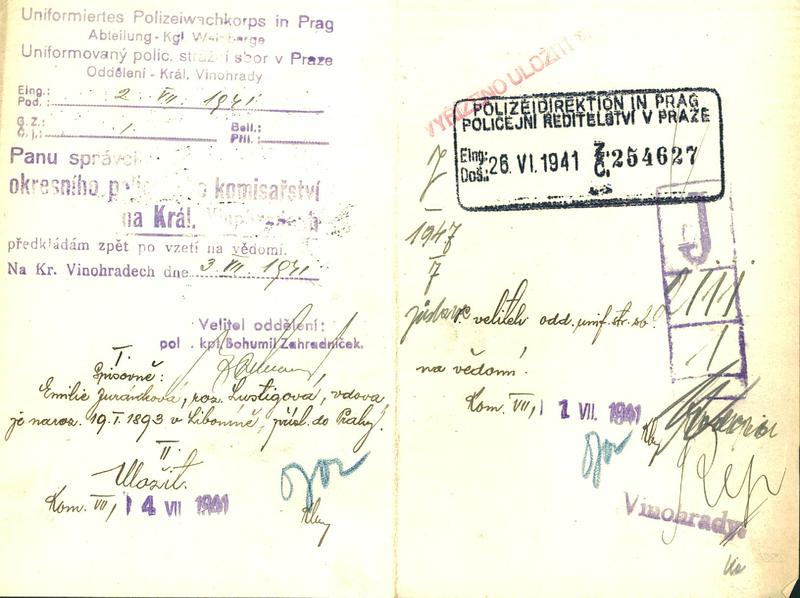 Uniformiertes Polizeiwachkorps in Prag
Abteilung - Kgl. Weinberge
Uniformovaný polic. strážní sbor v Praze
Oddělení - Král. Vinohrady
Eing.:
Pod.: 2. VII. 1941
G. Z.:
Č. j.: 1 Beil.:
Příl.:
Panu správci
okresního komisařství
na Král. Vinohradech
předkládám zpět po vzetí na vědomí.
Na Kr. Vinohradech dne 3. VII. 1941
Velitel oddělení:
pol. kpt. Bohumil Zahradníček.
I.
Spisovně:
Emilie roz. Lustigová, vdova
je naroz. 19. I. 1893 v přísl. do Prahy.
II.
Uložit.
Kom. VII, 4 VII 1941
VYŘÍZENO ULOŽITI
POLIZEIDIREKTION IN PRAG
POLICEJNÍ ŘEDITELSTVÍ V PRAZE
Eing.:
Doš.: 26. VI. 1941 Z. Č. 254627
J
1947
7
velitel odd. unif. str. sb.
na vědomí.
Kom. VII, 1 VII. 1941
Vinohrady.